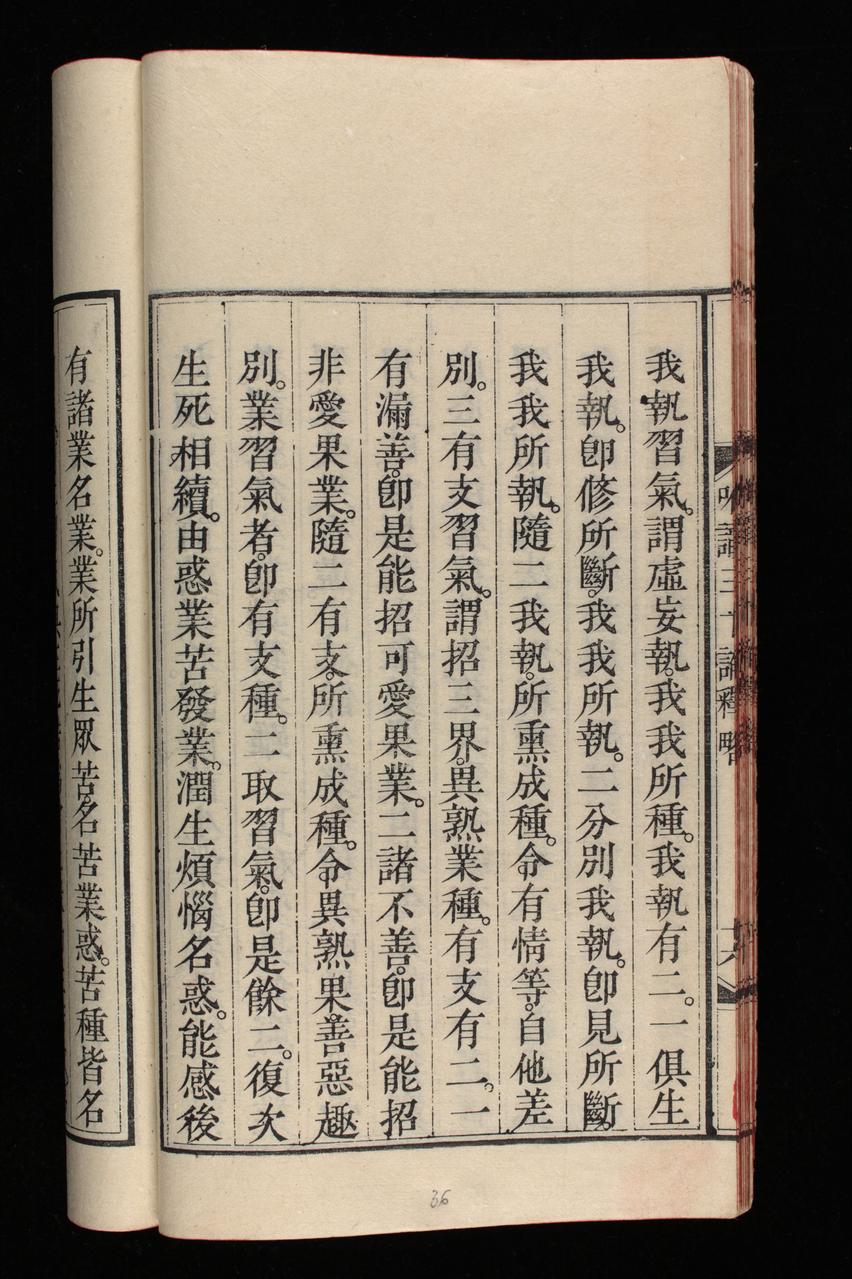 我執習氣。謂虛妄執。我我所種。我執有二。一俱生
我執。卽修所斷。我我所執。二分別我執。卽見所斷。
我我所執。隨二我執。所熏成種。令有情等。自他差
別。三有支習氣。謂招三界。異熟業種。有支有二。一
有漏善。卽是能招可愛果業。二諸不善。卽是能招
非愛果業。隨二有支。所熏成種。令異熟果。善惡趣
別。業習氣者。卽有支種。二取習氣。卽是餘二。復次
生死相續。由惑業苦發業。潤生煩惱名惑。能感後
有諸業名業。業所引生眾苦。名苦業惑。苦種皆名
三十論釋略
十六
36